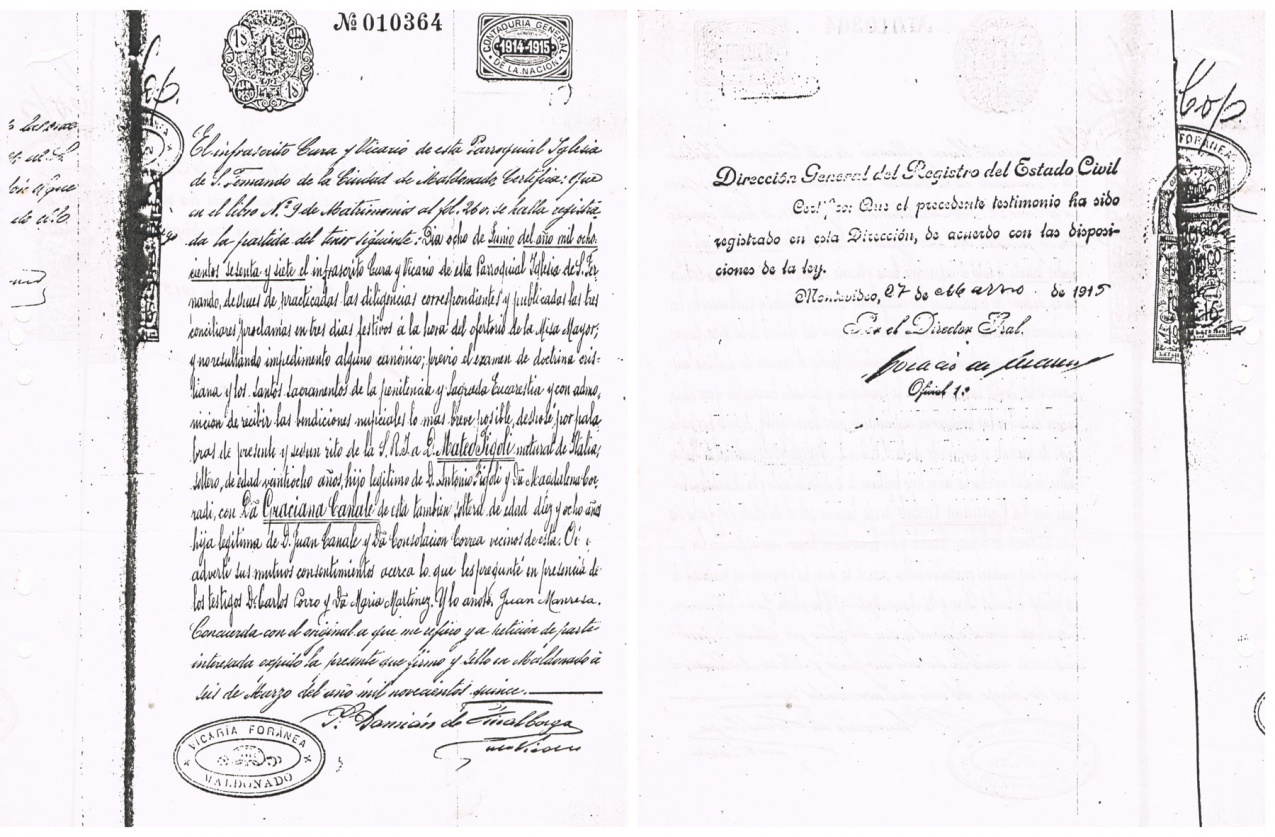 Nº 010364
1S
1
1S
CONTADURIA GENERAL
1914-1915
DE LA NACION
El infrascrito Cura y Vicario de esta Parroquial Iglesia
de S. Fernando de la Ciudad de Maldonado, Certifica: Que
en el libro N.º 9 de Matrimonios al fol. 26 v. se halla registra
da la partida del tenor siguiente: Dia ocho de Junio del año mil ocho
cientos sesenta y siete el infrascrito Cura y Vicario de esta Parroquial Iglesia de S. Fer
nando, despues de practicadas las diligencias correspondientes y publicadas las tres
conciliares proclamas en tres dias festivos á la hora del ofertorio de la Misa Mayor;
y no resultando impedimento alguno canonico, previo el examen de doctrina cris
tiana y los Santos Sacramentos de la penitencia y Sagrada Eucarestia y con admo
nicion de recibir las bendiciones nupciales lo mas breve posible, desposé por pala
bras de presente y segun rito de la S. R. I. a D. Mateo Figoli natural de Italia,
soltero, de edad veintiocho años, hijo legitimo de D. Antonio Figoli y Dª Magdalena Cor
radi, con Dª Graciana Canale de esta tambien soltera de edad diez y ocho años
hija legitima de D. Juan Canale y Dª Consolacion Correa vecinos de esta. Oi i
adverti sus mutuos consentimientos acerca lo que les pregunté en presencia de
los testigos D. Carlos Corro y Dª Maria Martinez. Y lo anoto, Juan Manresa.
Concuerda con el original a que me refiero y a peticion de parte
interesada expido la presente que firmo y sello en Maldonado á
seis de Marzo del año mil novecientos quince.
P. Damián de
VICARÍA FORÁNEA
MALDONADO
Dirección General del Registro del Estado Civil
Certifico: Que el precedente testimonio ha sido
registrado en esta Dirección, de acuerdo con las disposi-
ciones de la ley.
Montevideo, 27 de Marzo de 1915
Por el Director Gral.
Oficial 1º
Cop
FORANEA